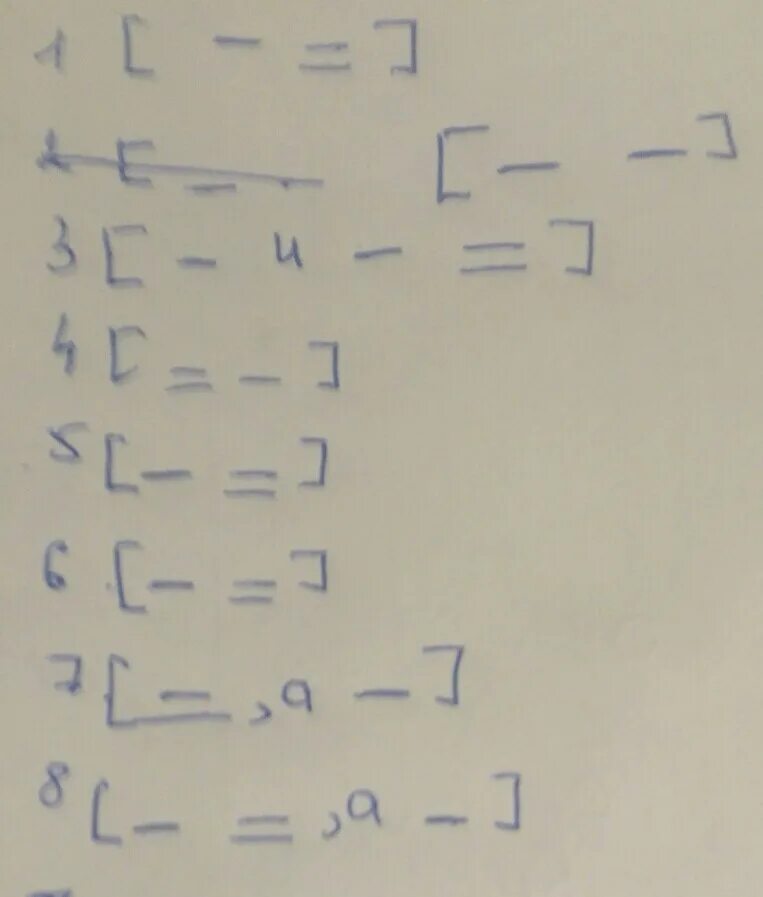 1 [ – = ]
2 [ – – [ – – ]
3 [ – и – = ]
4 [ = – ]
5 [ – = ]
6 [ – = ]
7 [ = , а – ]
8 [ – = , а – ]